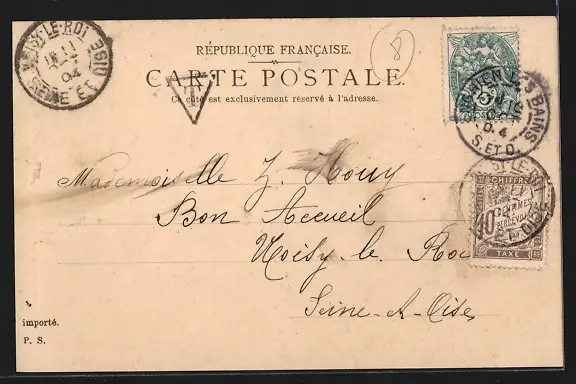 RÉPUBLIQUE FRANÇAISE.
CARTE POSTALE.
Ce côté est exclusivement réservé à l'adresse.
8
T
Mademoiselle Z. Houy
Bon Accueil
Noisy-le-Roi
Seine-&-Oise
importé.
P. S.
LE-ROI
04
SEINE ET OISE
5
LES BAINS
04
S. ET O.
CHIFFRE
10
CENTIMES
A PERCEVOIR
TAXE